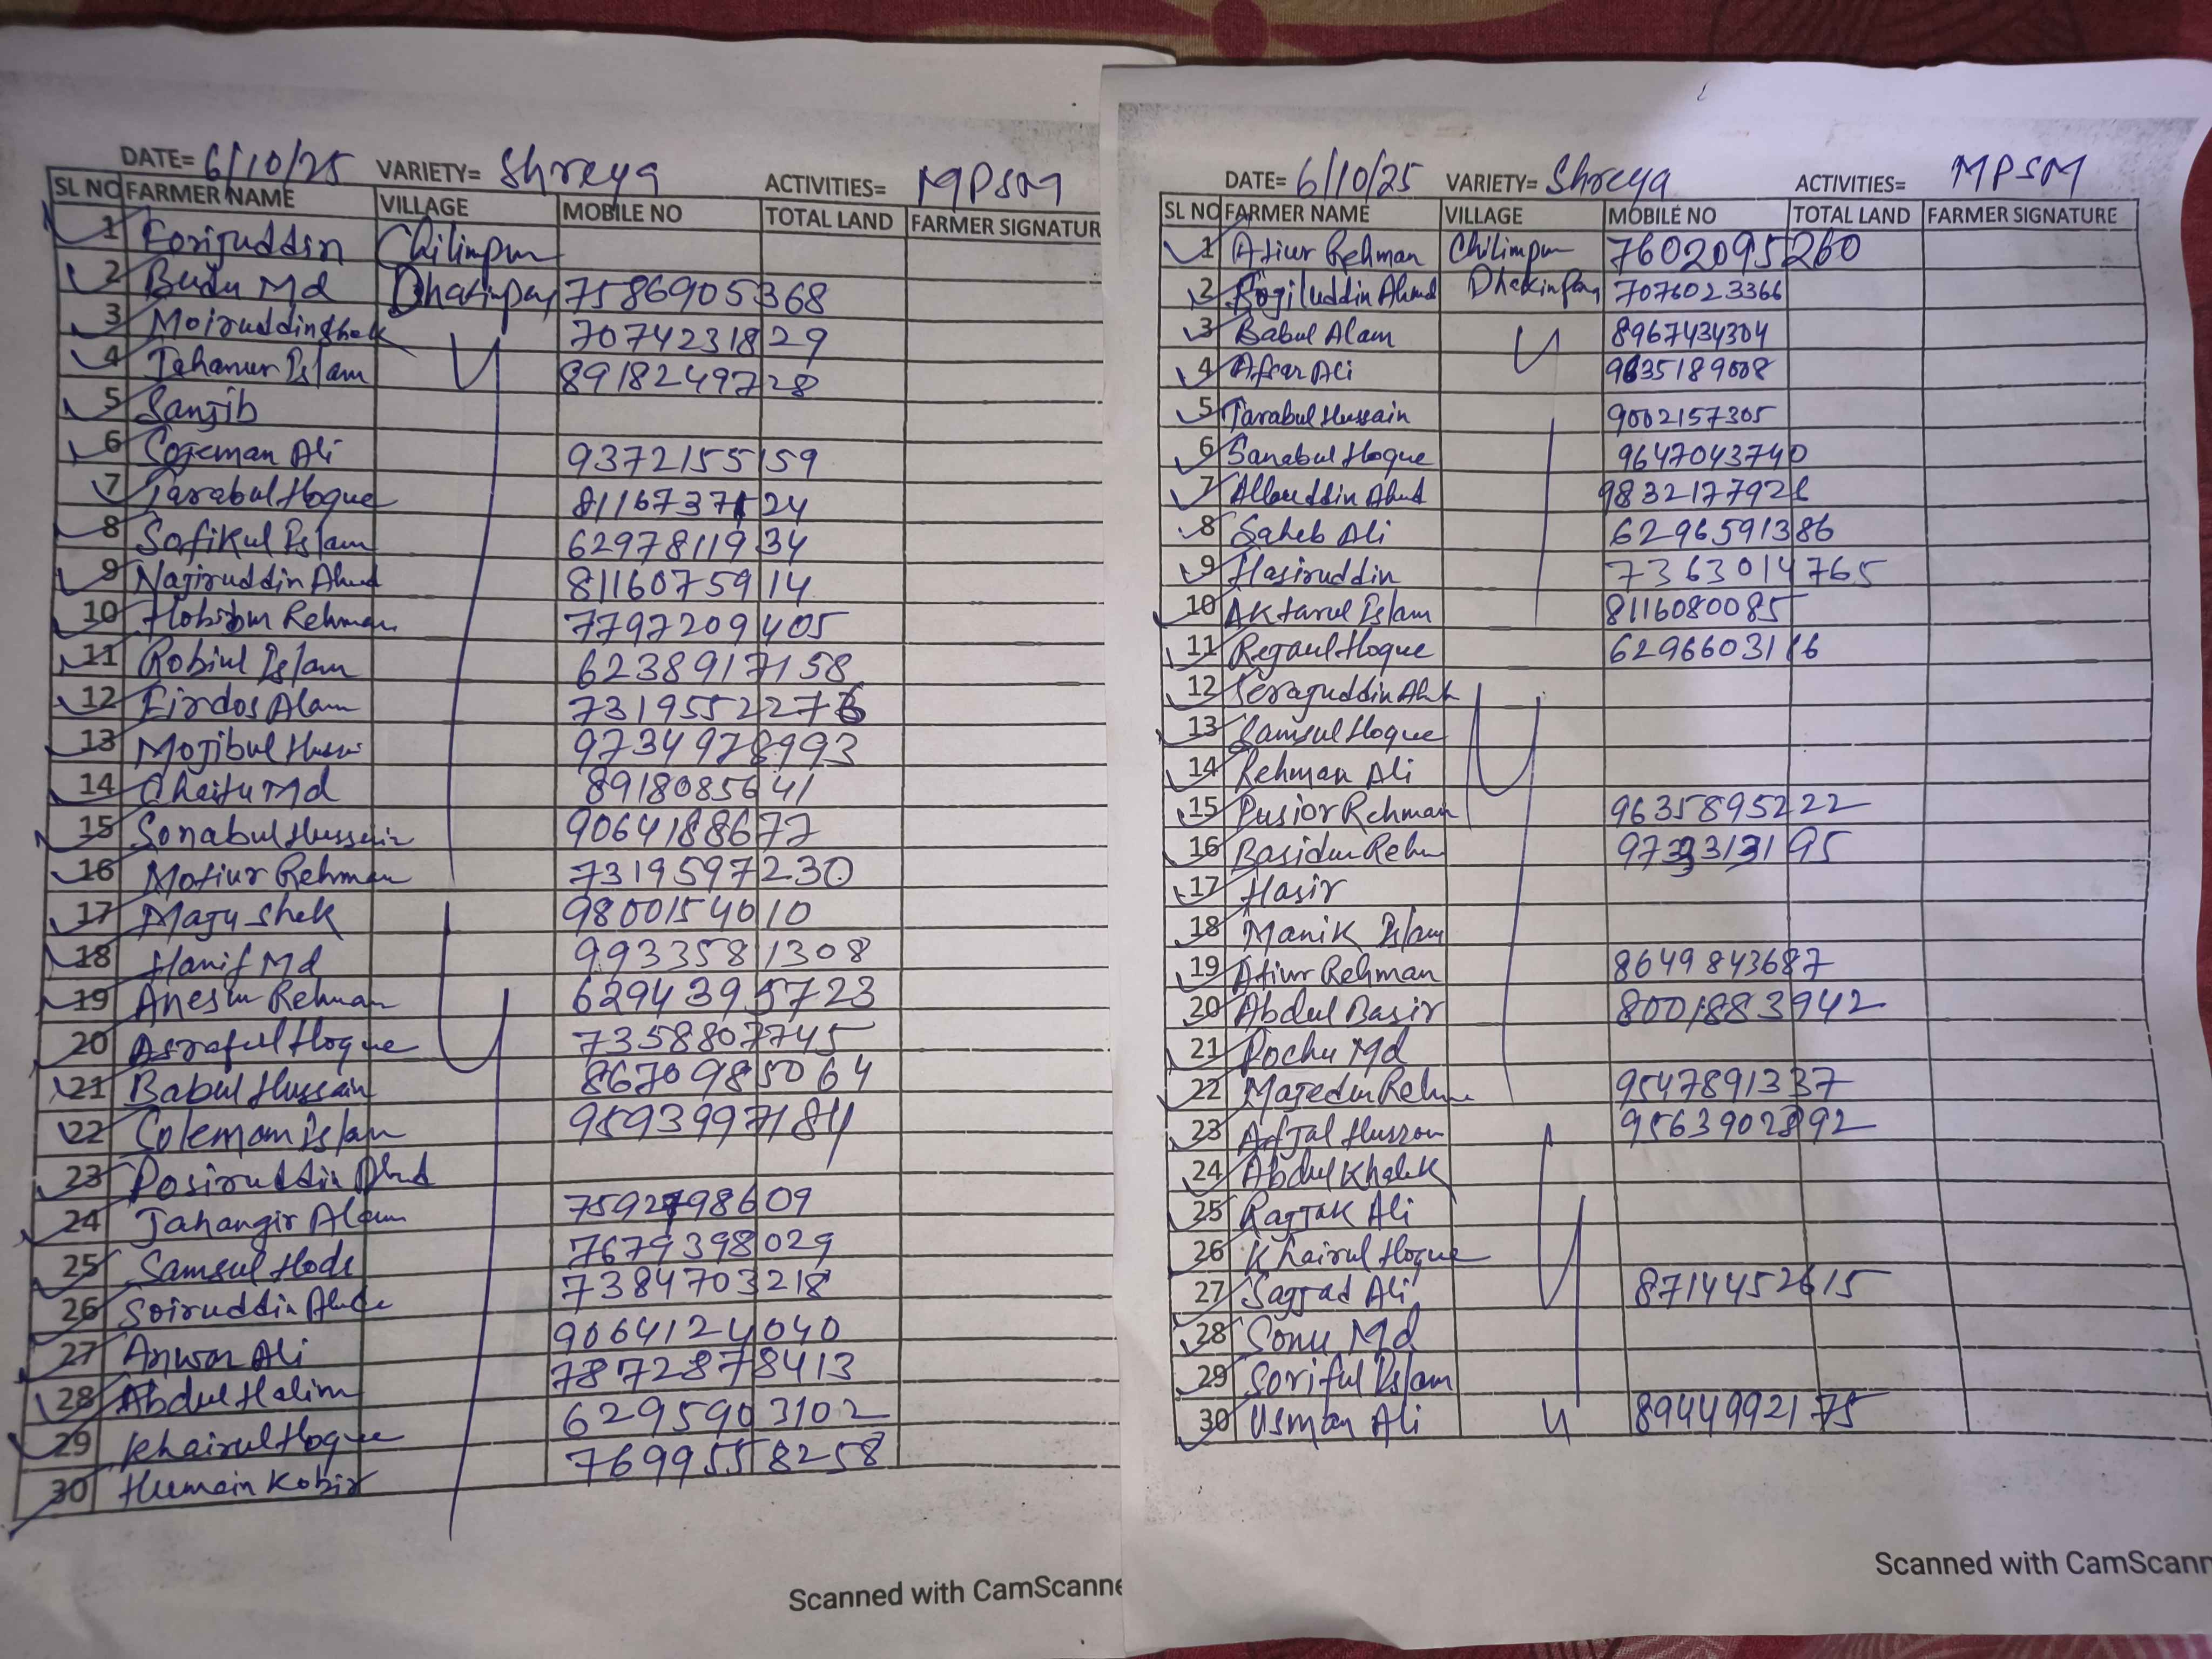 DATE= 6/10/25 VARIETY= Shreya ACTIVITIES= MPSM
SL NO FARMER NAME VILLAGE MOBILE NO TOTAL LAND FARMER SIGNATUR
1 Forijuddin Chilimpur
2 Budu Md Dhakinpara 7586905368
3 Moiruddin Shek " 7074231829
4 Jahanur Islam 8918249728
5 Sanjib
6 Cojeman Ali 9372155159
7 Tarabul Hoque 8116737124
8 Sofikul Islam 6297811934
9 Najiruddin Ahmd 8116075914
10 Hobibur Rehman 7797209405
11 Robiul Islam 6238917158
12 Firdos Alam 7319552276
13 Mojibul Hussai 9734978993
14 Chaitu Md 8918085641
15 Sonabul Hussain 9064188677
16 Motiur Rehman 7319597230
17 Maju Shek 9800154010
18 Hanif Md " 9933581308
19 Anesur Rehman 6294395723
20 Asraful Hoque 7358807745
21 Babul Hussain 8670985064
22 Colemom Islam 9593997184
23 Dasiruddin Ahmd
24 Jahangir Alam 7592798609
25 Samsul Hode 7679398029
26 Soiruddin Ahde 7384703218
27 Anwar Ali 9064124040
28 Abdul Halim 7872878413
29 Khairul Hoque 6295903102
30 Humain Kobir 7699558258
Scanned with CamScanne
DATE= 6/10/25 VARIETY= Shreya ACTIVITIES= MPSM
SL NO FARMER NAME VILLAGE MOBILE NO TOTAL LAND FARMER SIGNATURE
1 Atiur Rehman Chilimpur 7602095260
2 Fogiluddin Ahmd Dhakinpara 7076023366
3 Babul Alam " 8967434304
4 Afsar Ali 9635189008
5 Tarabul Hussain 9002157305
6 Sanabul Hoque 9647043740
7 Allauddin Ahmd 983217792
8 Saheb Ali 6296591386
9 Hasiruddin 7363014765
10 Aktarul Islam 8116080085
11 Rejaul Hoque 6296603116
12 Serajuddin Ahk
13 Samsul Hoque "
14 Rehman Ali
15 Pusior Rehman 9635895222
16 Basidur Rehm 9733313195
17 Hasir
18 Manik Islam
19 Atiur Rehman 8649843687
20 Abdul Basir 8001883942
21 Pochu Md
22 Majedur Rehm 9547891337
23 Afjal Hussan 9563902892
24 Abdul Khalek
25 Rajjak Ali
26 Khairul Hoque "
27 Sajjad Ali 8714452615
28 Sonu Md
29 Soriful Islam
30 Usman Ali " 89449992175
Scanned with CamScann